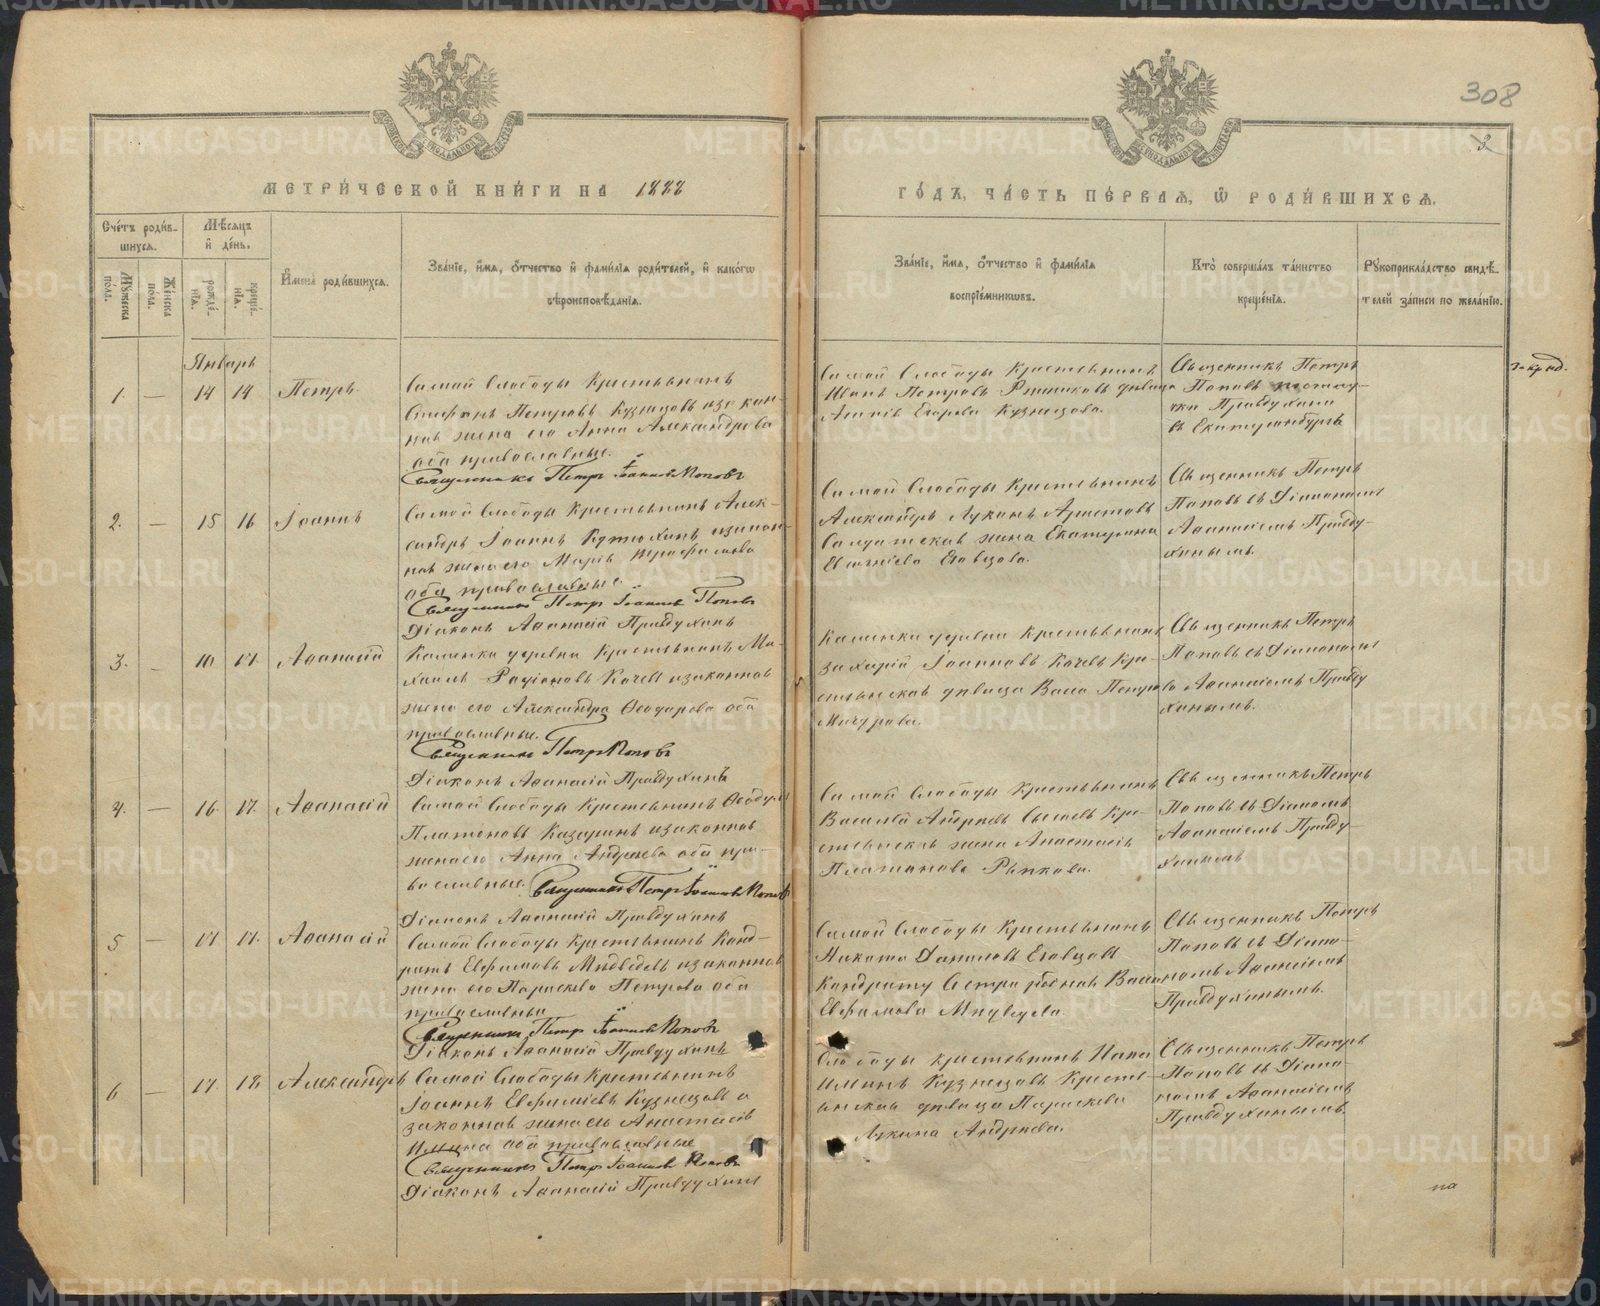 308
3
МЕТРИЧЕСКОЙ КНИГИ НА 1888
ГОДЪ, ЧАСТЬ ПЕРВАЯ, Ѿ РОДИВШИХСЯ.
Счетъ родив-
шихся.
Мужеска
пола.
Женска
пола.
Мѣсяцъ
и день.
рожде-
нія.
креще-
нія.
Имена родившихся.
Званіе, имя, отчество и фамилія родителей, и какогѡ
вѣроисповѣданія.
Званіе, имя, отчество и фамилія
воспріемниковъ.
Кто совершалъ таинство
крещенія.
Рукоприкладство свидѣ-
телей записи по желанію.
Январь
1. — 14 14 Петръ
Самой Слободы Крестьянинъ
Стефанъ Петровъ Кузнецовъ
ная жена его Анна Александрова
оба православные.
Священникъ Петръ Іоанновъ Поповъ
Самой Слободы Крестьянинъ
Иванъ Петровъ девица
Егорова Кузнецова.
Священникъ Петръ
Поповъ
Правдухина
въ Екатеринбургъ
2. — 15 16 Іоаннъ
Самой Слободы Крестьянинъ Алек-
сандръ Іоаннъ
ная жена его Марія
оба православные.
Священникъ Петръ Іоанновъ Поповъ
Діаконъ Аѳанасій Правдухинъ
Самой Слободы Крестьянинъ
Александръ Лукинъ
Салдатская жена Екатерина
Священникъ Петръ
Поповъ съ Діакономъ
Аѳанасіемъ Правду-
хинымъ.
3. — 10 17 Аѳанасій
Каменки деревни Крестьянинъ Ми-
хаилъ Родіоновъ Качевъ изаконная
жена его Александра Ѳеодорова оба
православные.
Священникъ Петръ Поповъ
Діаконъ Аѳанасій Правдухинъ
Каменки деревни Крестьянинъ
Захарій Іоанновъ Качевъ Кре-
стьянская девица Васса Петрова
Мичурова.
Священникъ Петръ
Поповъ съ Діакономъ
Аѳанасіемъ Правду
хинымъ.
4. — 16 17 Аѳанасій
Самой Слободы Крестьянинъ Ѳеодоръ
Платоновъ Казаринъ изаконная
жена его Анна Андреева оба пра-
вославные. Священникъ Петръ Іоанновъ Поповъ
Діаконъ Аѳанасій Правдухинъ
Самой Слободы Крестьянинъ
Василій Андреевъ Сысоевъ Кре-
стьянская жена Анастасія
Платонова Репкова.
Священникъ Петръ
Поповъ съ Діакономъ
Аѳанасіемъ Правду-
хинымъ
5 — 17 17. Аѳанасій
Самой Слободы Крестьянинъ Конд-
ратъ Евфимовъ Медведевъ изаконная
жена его Параскева Петрова оба
православны
Священникъ Петръ Іоанновъ Поповъ
Діаконъ Аѳанасій Правдухинъ
Самой Слободы Крестьянинъ
Никита Даниловъ
Кондрату Сестра родная Васса
Евфимова Медведева.
Священникъ Петръ
Поповъ съ Діако-
номъ Аѳанасіемъ
Правдухинымъ.
6 — 17. 18. Александръ
Самой Слободы Крестьянинъ
Іоаннъ Евфиміевъ Кузнецовъ а
законная жена его Анастасія
Ильина оба православные
Священникъ Петръ Іоанновъ Поповъ
Діаконъ Аѳанасій Правдухинъ
Слободы крестьянинъ
Ильинъ Кузнецовъ Кресть-
янская девица Параскева
Лукина Андреева.
Священникъ Петръ
Поповъ съ Діако-
номъ Аѳанасіемъ
Правдухинымъ
на
METRIKI.GASO-URAL.RU